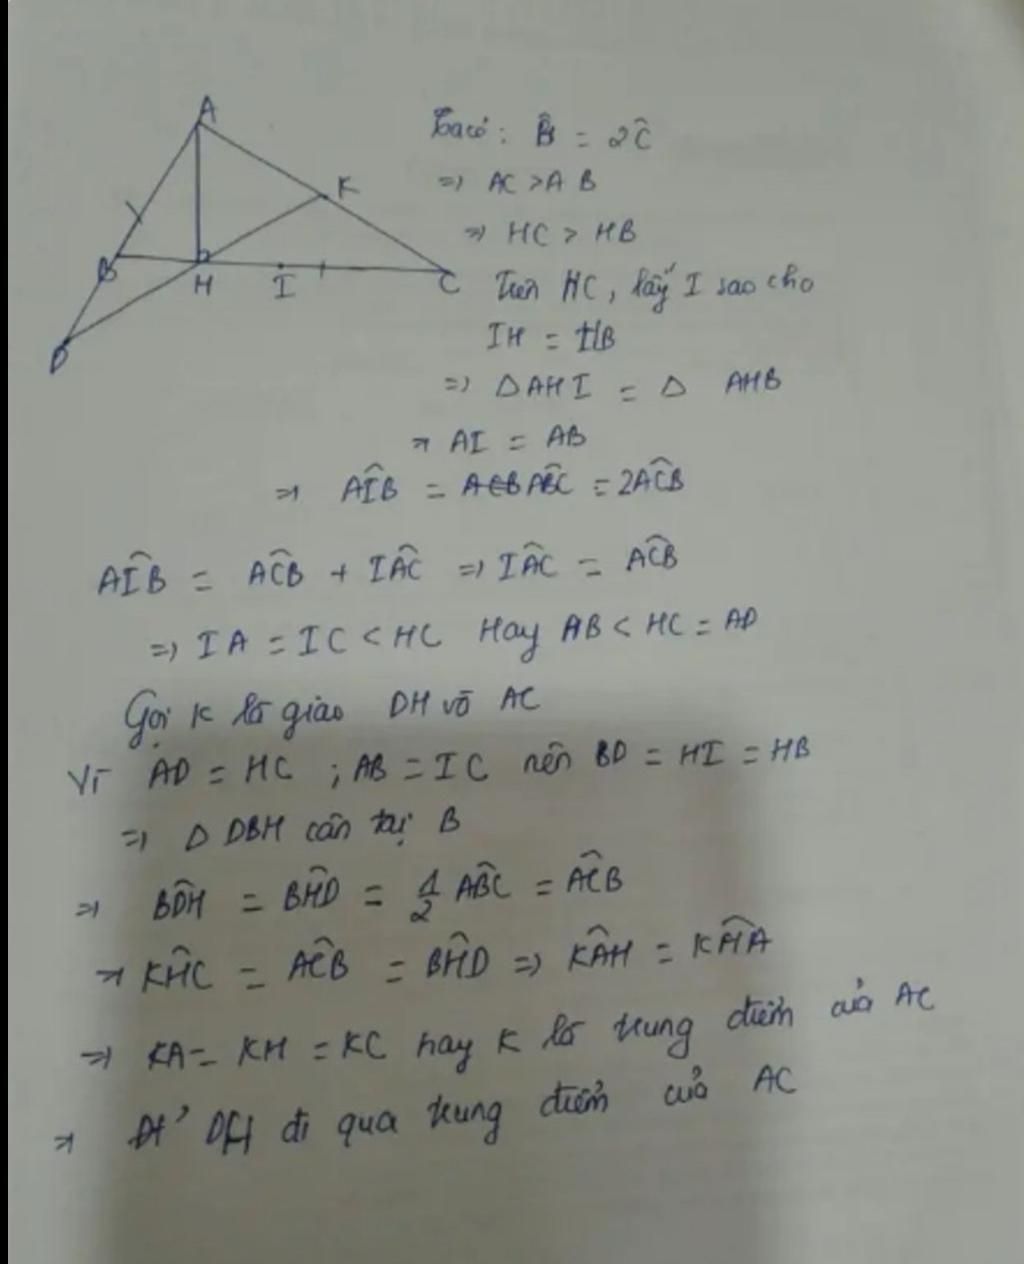 A
K
B
H
I
C
D
Ta có: B̂ = 2Ĉ
=> AC > AB
=> HC > HB
Trên HC, lấy I sao cho
IH = HB
=> △AHI = △ AHB
=> AI = AB
=> AÎB = AB̂C = 2AĈB
AÎB = AĈB + IÂC => IÂC = AĈB
=> IA = IC < HC Hay AB < HC = AD
Gọi K là giao DH và AC
Vì AD = HC ; AB = IC nên BD = HI = HB
=> △ DBH cân tại B
=> BD̂H = BĤD = 1/2 AB̂C = AĈB
=> KĤC = AĈB = BĤD => KÂH = KĤA
=> KA = KH = KC hay K là trung điểm của AC
=> Đt' DH đi qua trung điểm của AC